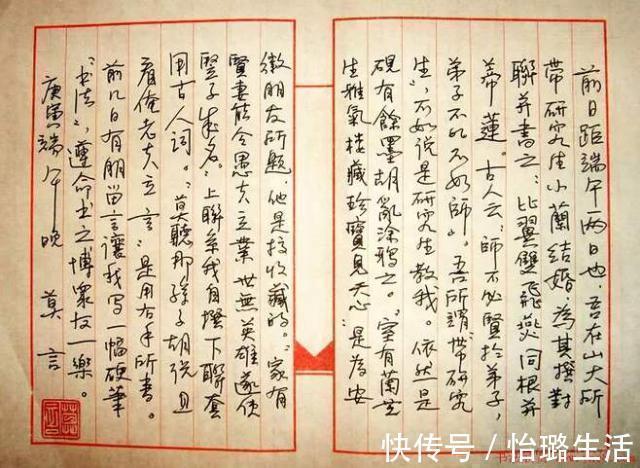 前日距端午一两日也,吾在山大所
带研究生小蘭结婚,為其撰對
聯并書之:比翼雙飛燕 同根并
蒂蓮。古人云:師不必賢於弟子,
弟子不必不如師"。吾所謂"带研究
生",不如说是研究生教我。依然是
硯有餘墨胡亂涂鴉之。"室有蘭芝
生雅氣 楼藏珍寶見天心":是為安
徽朋友所题,他是搞收藏的。"家有
賢妻能令愚夫立業 世無英雄遂使
竪子成名"上聯系我自撰下聯套
用古人词。"莫聽那孫子胡说 且
看俺老夫立言":是用右手所書。
前几日有朋留言讓我写一幅硬筆
"书法",遵命书之博眾友一樂。
庚寅端午晚 莫言
快传号/怡璐生活